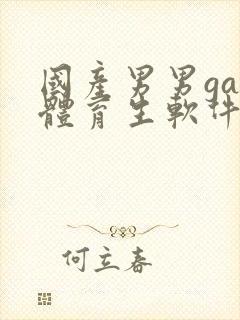 國產男男ga
體育生軟件
何立春